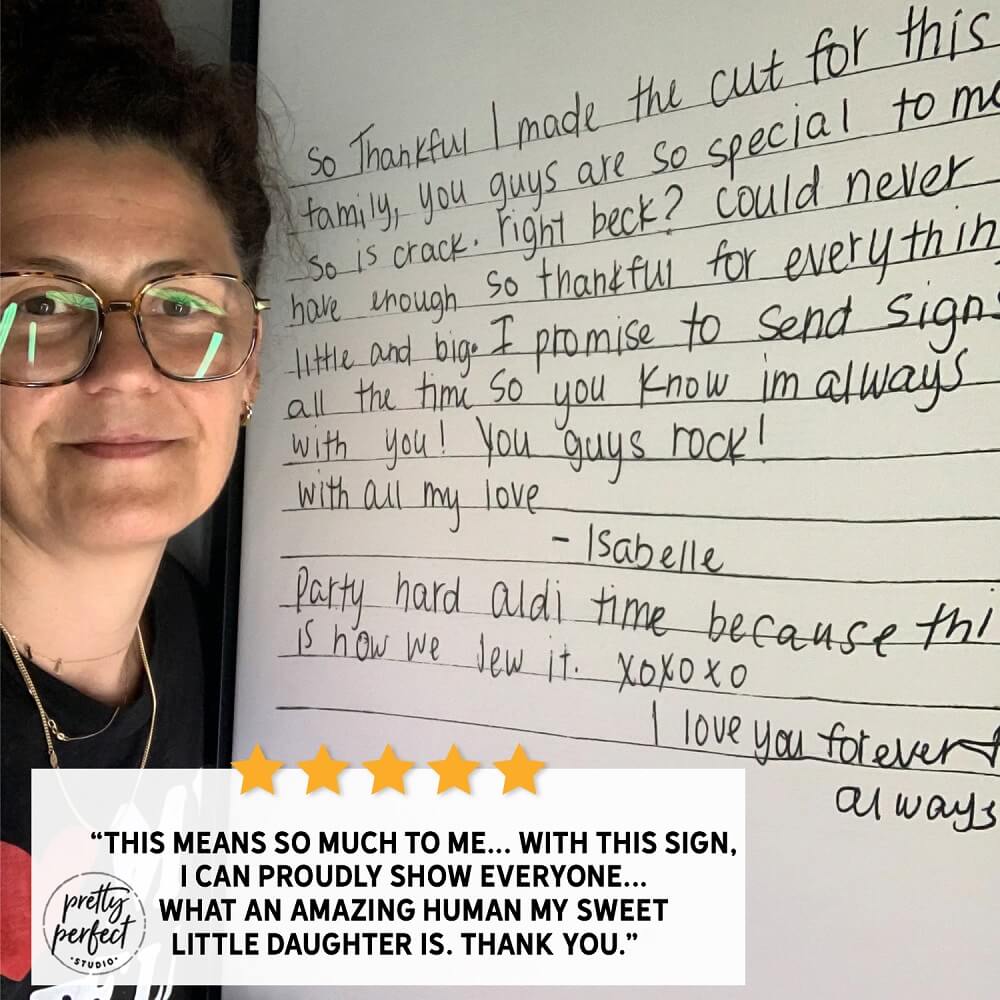 So Thankful I made the cut for this
family, you guys are so special to me
so is crack. right beck? Could never
have enough so thankful for everythin
little and big. I promise to send signs
all the time So you Know im always
with you! You guys rock!
with all my love
- Isabelle
Party hard aldi time because thi
is how we Jew it. xoxoxo
I love you forever +
always
“THIS MEANS SO MUCH TO ME... WITH THIS SIGN,
I CAN PROUDLY SHOW EVERYONE...
WHAT AN AMAZING HUMAN MY SWEET
LITTLE DAUGHTER IS. THANK YOU.”
pretty
perfect
•STUDIO•